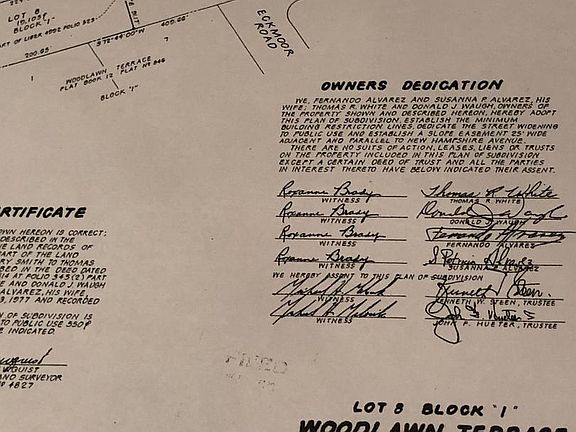 LOT 8
BLOCK "I"
PART OF LIBER 4992 FOLIO 523
200.65'
S 72-44-00 W
400.66'
7
WOODLAWN TERRACE
PLAT BOOK 12 PLAT No 846
BLOCK "I"
ECKMOOR
ROAD
OWNERS DEDICATION
WE, FERNANDO ALVAREZ AND SUSANNA P. ALVAREZ, HIS
WIFE; THOMAS R. WHITE AND DONALD J. WAUGH, OWNERS OF
THE PROPERTY SHOWN AND DESCRIBED HEREON, HEREBY ADOPT
THIS PLAN OF SUBDIVISION, ESTABLISH THE MINIMUM
BUILDING RESTRICTION LINES, DEDICATE THE STREET WIDENING
TO PUBLIC USE AND ESTABLISH A SLOPE EASEMENT 25' WIDE
ADJACENT AND PARALLEL TO NEW HAMPSHIRE AVENUE.
THERE ARE NO SUITS OF ACTION, LEASES, LIENS OR TRUSTS
ON THE PROPERTY INCLUDED IN THIS PLAN OF SUBDIVISION
EXCEPT A CERTAIN DEED OF TRUST AND ALL THE PARTIES
IN INTEREST THERETO HAVE BELOW INDICATED THEIR ASSENT.
Roxanne Brady Thomas R White
WITNESS THOMAS R. WHITE
Roxanne Brady Donald J Waugh
WITNESS DONALD J. WAUGH
Roxanne Brady Fernando Alvarez
WITNESS FERNANDO ALVAREZ
Roxanne Brady Alvarez
WITNESS SUSANNA P. ALVAREZ
WE HEREBY ASSENT TO THIS PLAN OF SUBDIVISION
Kenneth Steen
WITNESS KENNETH W. STEEN, TRUSTEE
John F Hueter
WITNESS JOHN F. HUETER, TRUSTEE
RTIFICATE
OWN HEREON IS CORRECT;
DESCRIBED IN THE
E LAND RECORDS OF
ART OF THE LAND
RY SMITH TO THOMAS
BED IN THE DEED DATED
IN AT FOLIO 545 (2) PART
E AND DONALD J. WAUGH
ALVAREZ, HIS WIFE
3, 1977 AND RECORDED
N OF SUBDIVISION IS
TO PUBLIC USE 550
E INDICATED.
QUIST
AND SURVEYOR
No 4827
LOT 8 BLOCK "I"
WOODLAWN TERRACE